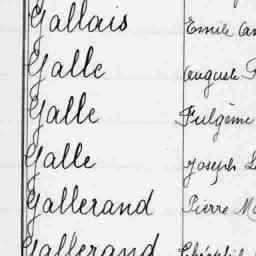 Gallais Emile
Galle Auguste
Galle Fulgème
Galle Joseph
Gallerand Pierre
Gallerand Théophile